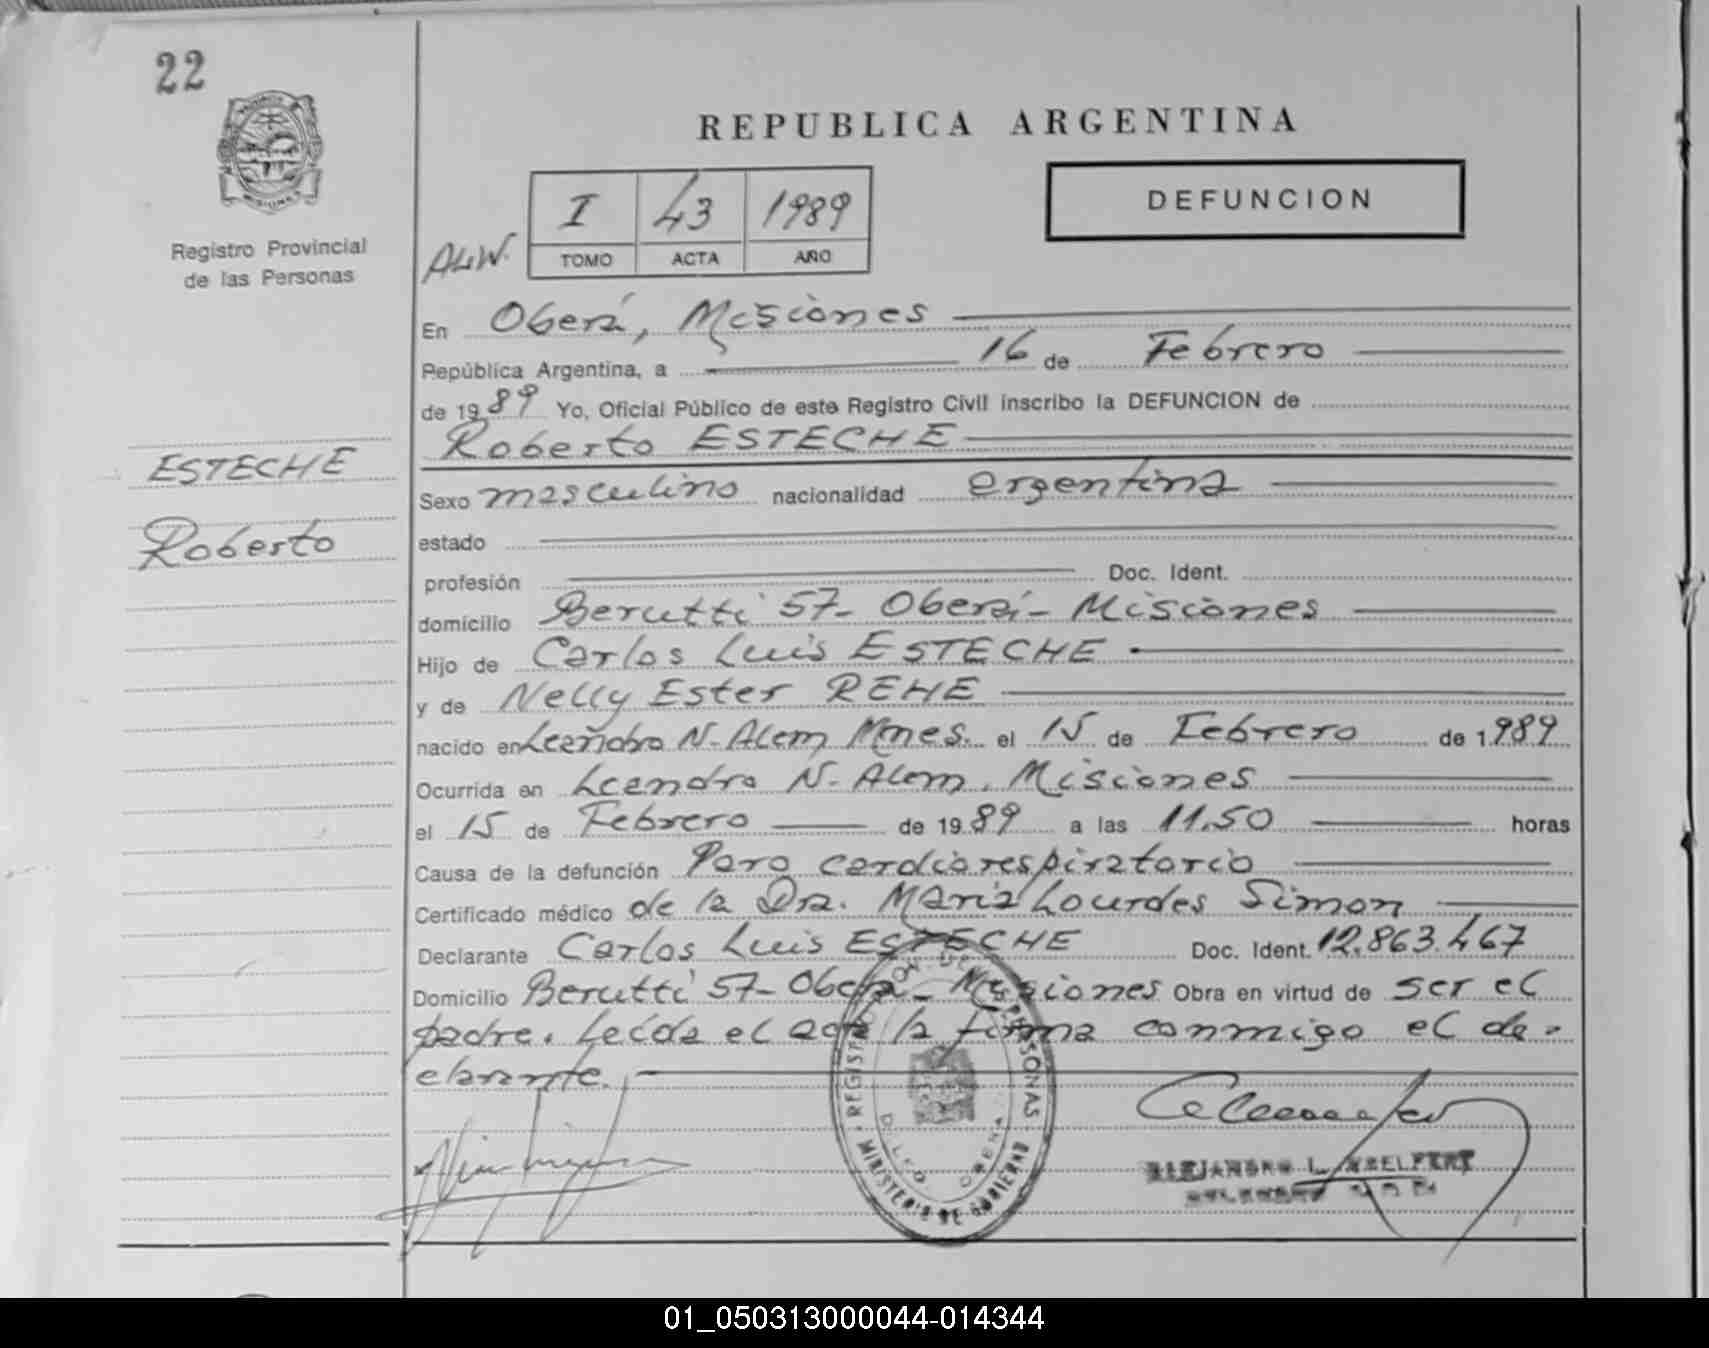 22
REPUBLICA ARGENTINA
DEFUNCION
I 43 1989
TOMO ACTA AÑO
ALW.
PROVINCIA
MISIONES
Registro Provincial
de las Personas
En Oberá, Misiones
República Argentina, a 16 de Febrero
de 1989 Yo, Oficial Público de este Registro Civil inscribo la DEFUNCION de
Roberto ESTECHE
ESTECHE
Roberto
Sexo masculino nacionalidad argentina
estado
profesión Doc. Ident.
domicilio Berutti 57- Oberá- Misiones
Hijo de Carlos Luis ESTECHE
y de Nelly Ester REHE
nacido en Leandro N. Alem Mnes. el 15 de Febrero de 1.989
Ocurrida en Leandro N. Alem, Misiones
el 15 de Febrero de 1989 a las 11.50 horas
Causa de la defunción Paro cardiorespiratorio
Certificado médico de la Dra. María Lourdes Simon
Declarante Carlos Luis ESTECHE Doc. Ident. 12.863.467
Domicilio Berutti 57- Oberá- Misiones Obra en virtud de ser el
padre. Leída el acta la firma conmigo el de-
clarante.
PERSONAS
MINISTERIO DE GOBIERNO
OBERA
ALEJANDRO L.
01_050313000044-014344